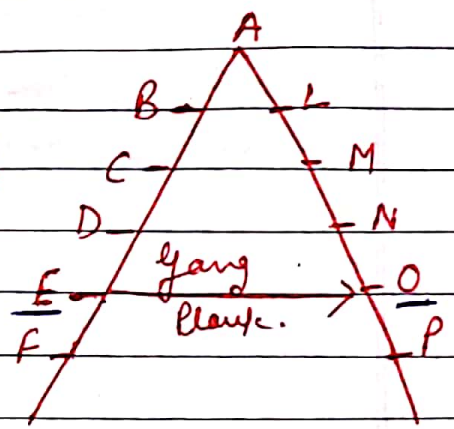 A
B L
C M
D N
Gang
E O
Plank.
F P